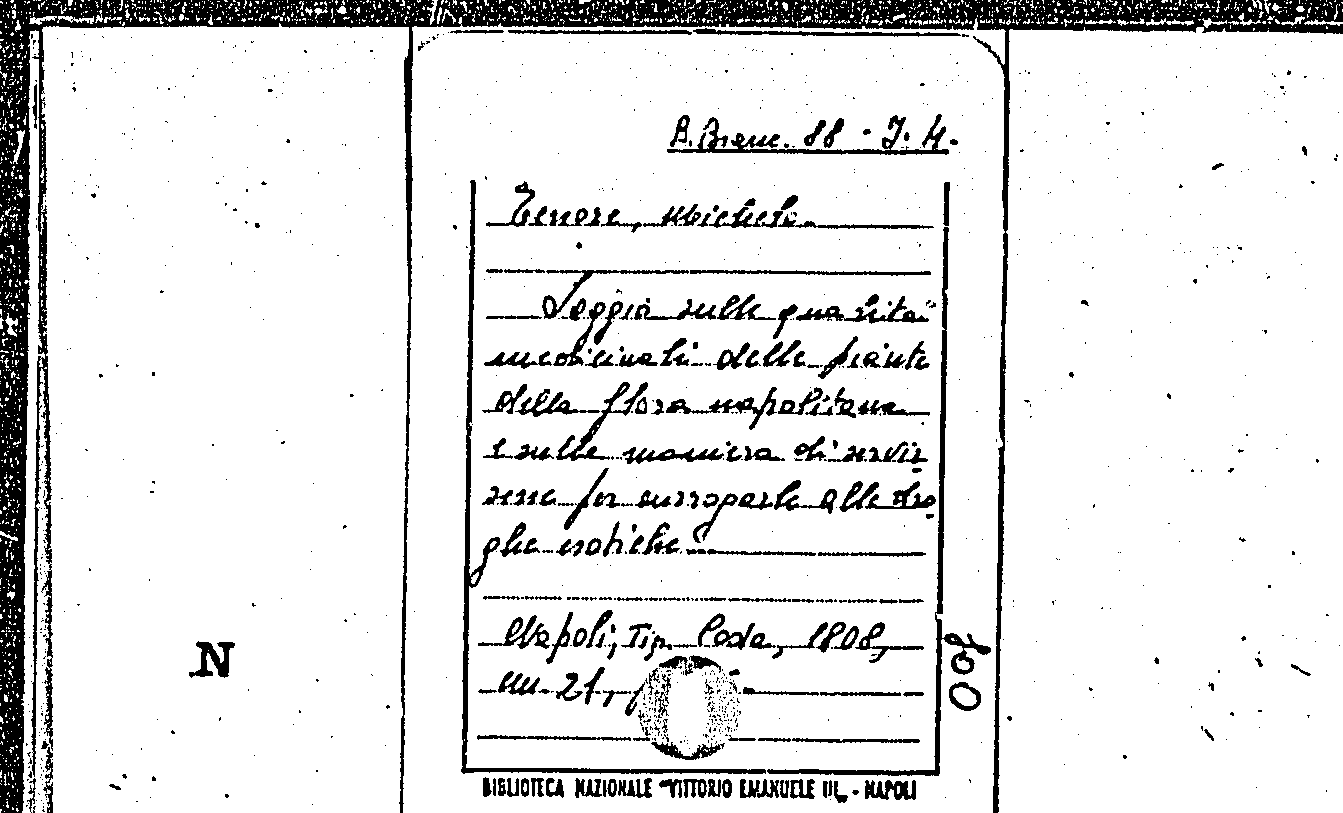 B. Branc. 88 - I. 4.
Tenore, Michele.
Saggio sulle qualità
medicinali delle piante
della flora napolitana
e sulla maniera di servir
sene per surrogarle alle dro
ghe esotiche.
Napoli, Tip. Coda, 1808,
cm. 21,
oof
N
BIBLIOTECA NAZIONALE "VITTORIO EMANUELE III„ - NAPOLI